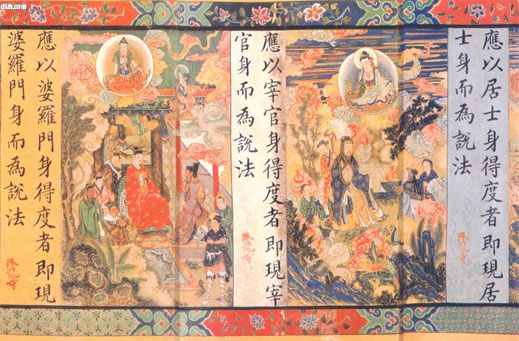 應以居士身得度者即現居
士身而為說法
應以宰官身得度者即現宰
官身而為說法
應以婆羅門身得度者即現
婆羅門身而為說法